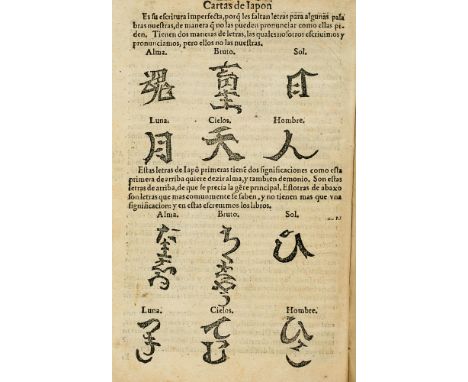 Cartas de Iapon
Es su escritura Imperfecta, porq̃ les faltan letras para algunas pala
bras nuestras, de manera q̃ no las pueden pronunciar como ellas pi
den. Tienen dos maneras de letras, las quales nosotros escriuimos y
pronunciamos, pero ellos no las nuestras.
Alma. Bruto. Sol.
魂 畜生 日
Luna. Cielos. Hombre.
月 天 人
Estas letras de Iapõ primeras tienẽ dos significaciones como esta
primera de arriba quiere dezir alma, y tambien demonio. Son estas
letras de arriba, de que se precia la gẽte principal. Estotras de abaxo
son letras que mas comunmente se saben, y no tienen mas que vna
significacion: y en estas escreuimos los libros.
Alma. Bruto. Sol.
ひ
Luna. Cielos. Hombre.
つき てむ ひと